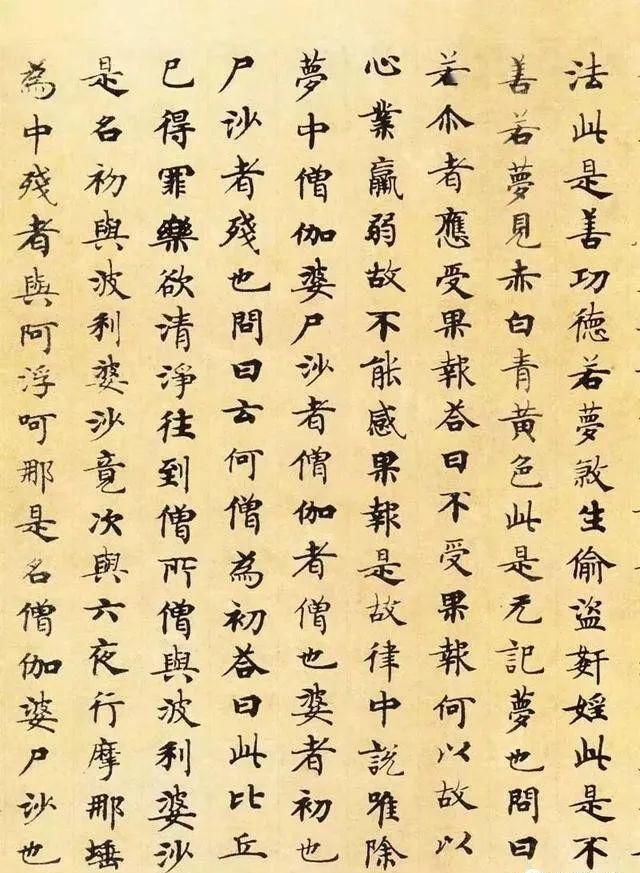 法此是善功德若夢煞生偷盜姧婬此是不
善若夢見赤白青黄色此是无記夢也問曰
若尒者應受果報荅曰不受果報何以故以
心業羸弱故不能感果報是故律中說唯除
夢中僧伽婆尸沙者僧伽者僧也婆者初也
尸沙者殘也問曰云何僧為初荅曰此比丘
已得罪樂欲清淨往到僧所僧與波利婆沙
是名初與波利婆沙竟次與六夜行摩那埵
為中殘者與阿浮呵那是名僧伽婆尸沙也